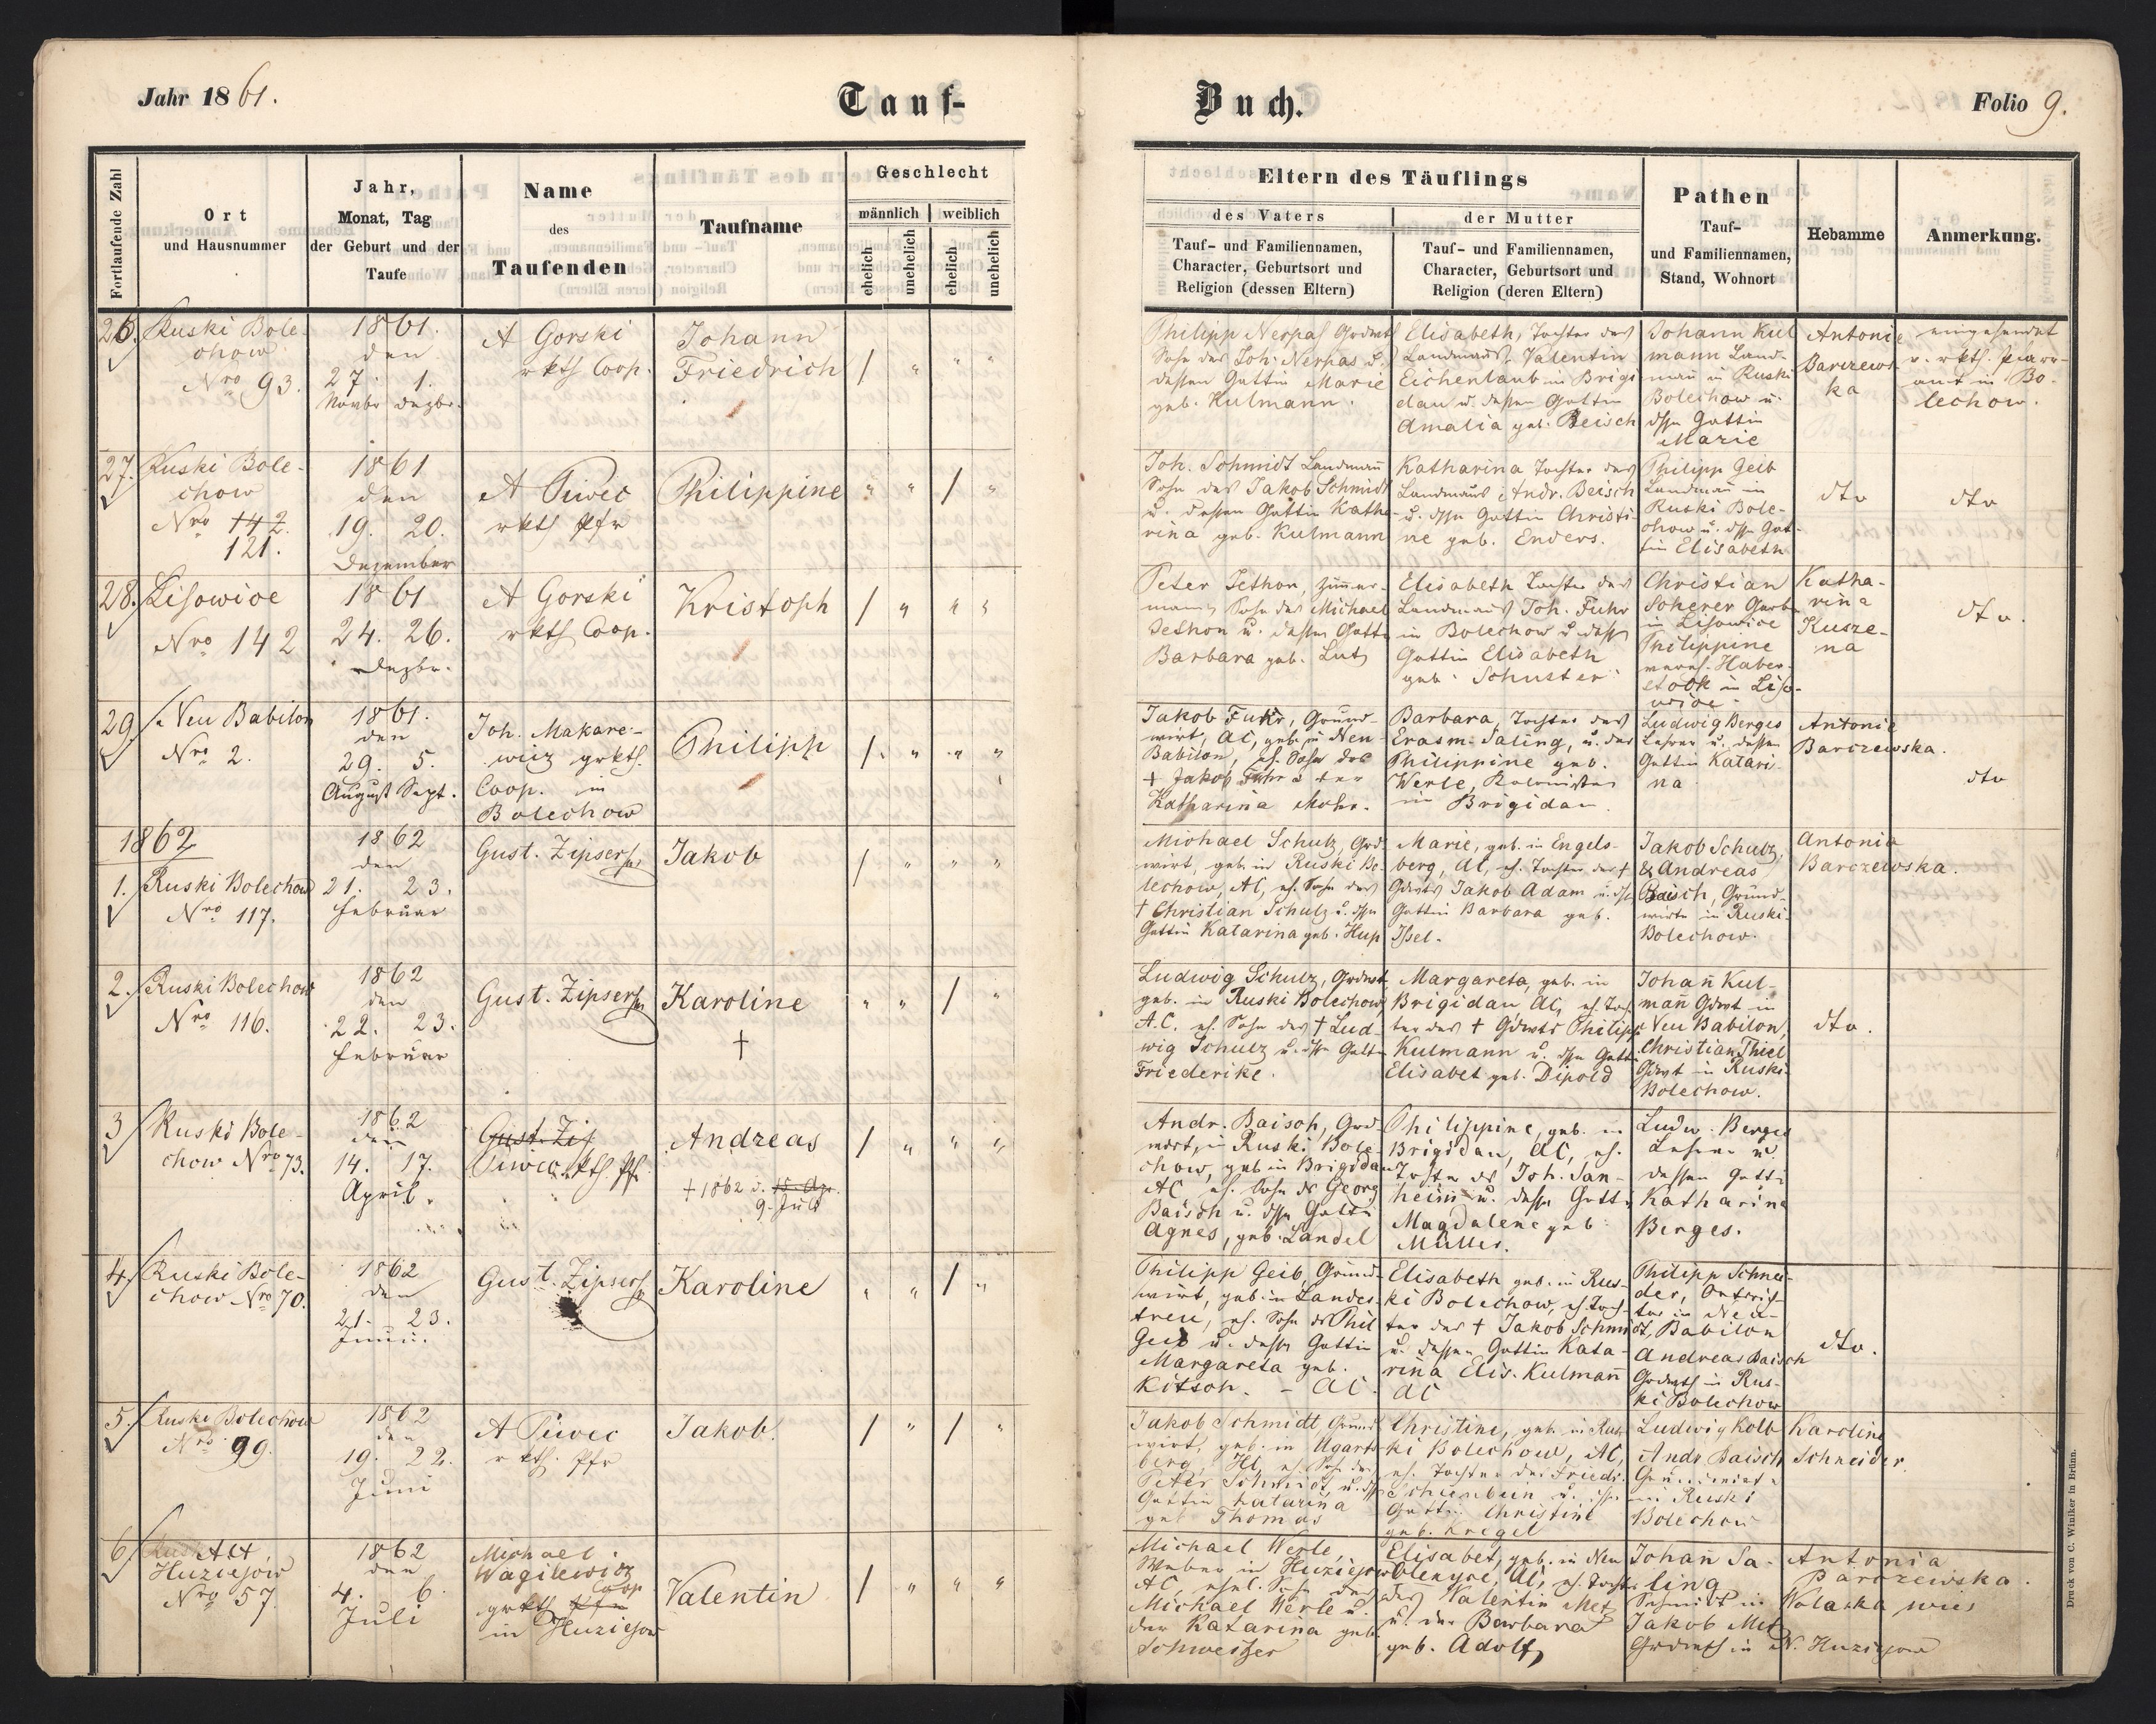 Jahr 1861.
Tauf-
Buch.
Folio 9.
Fortlaufende Zahl
Ort
und Hausnummer
Jahr,
Monat, Tag
der Geburt und der
Taufe
Name
des
Taufenden
Taufname
Geschlecht
männlich
weiblich
ehelich
unehelich
ehelich
unehelich
Eltern des Täuflings
des Vaters
Tauf- und Familiennamen,
Character, Geburtsort und
Religion (dessen Eltern)
der Mutter
Tauf- und Familiennamen,
Character, Geburtsort und
Religion (deren Eltern)
Pathen
Tauf-
und Familiennamen,
Stand, Wohnort
Hebamme
Anmerkung.
26.
Ruski Bole-
chow
Nro 93.
1861.
den
27. 1.
Novbr Dezbr.
A Gorski
rkth Coop.
Johann
Friedrich
/ " " "
Philipp Nerpas Grdwth
Sohn des Joh. Nerpas u.
dessen Gattin Marie
geb. Kulmann.
Elisabeth, Tochter des
Landmanns Valentin
Eichenlaub in Brigi
dau u. dessen Gattin
Amalia geb. Beisch
Johann Kul
mann Land-
mañ in Ruski
Bolechow u.
dssn Gattin
Marie
Antonie
Barczews
ka
eingesendet
v. rkth. Pfarr-
amt in Bo-
lechow.
27.
Ruski Bole-
chow
Nro 142.
121.
1861
den
19. 20.
Dezember
A Piwec
rkth Pfr
Philippine
" " / "
Joh. Schmidt Landmañ
Sohn des Jakob Schmidt
u. dessen Gattin Katha-
rina geb. Kulmann
Katharina Tochter des
Landmanns Andr. Beisch
u. dssn Gattin Christi-
ne geb. Enders.
Philipp Geib
Landmañ in
Ruski Bole-
chow u. dssn Gat-
tin Elisabeth
dto
dto
28.
Lisowice
Nro 142
1861
24. 26.
Dezbr.
A Gorski
rkth Coop.
Kristoph
/ " " "
Peter Jethon, Zimmer-
mann, Sohn des Michael
Jethon u. dessen Gatti
Barbara geb. Lutz
Elisabeth Tochter des
Landmanns Joh. Fuhr
in Bolechow u. dessn
Gattin Elisabeth
geb. Schuster
Christian
Scherer Gerber
in Lisowice
Philippine
vereh. Haber-
stock in Liso-
wice.
Katha-
rina
Kusze-
na
dto.
29.
Neu Babilon
Nro 2.
1861.
den
29. 5.
August Sept.
Joh. Makare-
wicz grkth.
Coop. in
Bolechow
Philipp
/ " " "
Jakob Fuhr, Grund-
wirt, AC, geb. in Neu-
Babilon, eh. Sohn des
† Jakob Fuhr u. der
Katharina Mohr.
Barbara, Tochter des
Erasm. Saling, u. der
Philippine geb.
Werle, Kolonisten
in Brigidau.
Ludwig Berges
Lehrer u. dessen
Gattin Katari-
na
Antonie
Barczewska.
dto
1862
1.
Ruski Bolechow
Nro 117.
1862
den
21. 23.
Februar
Gust. Zipser
Jakob
/ " " "
Michael Schulz, Grd-
wirt, geb. in Ruski Bo-
lechow, AC, eh. Sohn des
† Christian Schulz u. dssn
Gattin Katarina geb. Hup
Marie, geb. in Engels-
berg, AC, eh. Tochter des †
Gdwts Jakob Adam u. dssn
Gattin Barbara geb.
Issel.
Jakob Schulz,
& Andreas
Baisch, Grund-
wirte in Ruski-
Bolechow.
Antonia
Barczewska.
2.
Ruski Bolechow
Nro 116.
1862
den
22. 23.
Februar
Gust. Zipser
Karoline
†
" " / "
Ludwig Schulz, Grdwt,
geb. in Ruski Bolechow,
A.C. eh. Sohn des † Lud-
wig Schulz u. dssn Gattin
Friederike.
Margareta, geb. in
Brigidau AC, eh. Toch-
ter des † Gdwts Philipp
Kulmann u. dssn Gattin
Elisabet geb. Dipold
Johañ Kul-
mañ Gdwt in
Neu Babilon,
Christian Thiel
Gdwt in Ruski-
Bolechow.
dto.
3
Ruski Bole-
chow Nro 73.
1862
den
14. 17.
April.
Gust. Zip
Piwec rkth. Pfr.
Andreas
† 1862 d. 15. Apr.
9. Juli
/ " " "
Andr. Baisch, Grd-
wirt, in Ruski Bole-
chow, geb in Brigidau
AC, eh. Sohn ds Georg
Baisch u. dssn Gatti
Agnes, geb. Landel
Philippine, geb. in
Brigidau, AC, eh.
Tochter ds Joh. San-
heim u. dessn Gatti
Magdalene geb.
Müller.
Ludw. Berges
Lehrer u.
dessen Gatti
Katharina
Berges.
4.
Ruski Bole-
chow Nro 70.
1862
den
21. 23.
Juni.
Gust. Zipser
Karoline
" " / "
Philipp Geib, Grund-
wirt, geb. in Landes-
treu, eh. Sohn ds Phil
Geib u. dessen Gattin
Margareta geb.
Kitsch. - AC.
Elisabeth geb. in Rus-
ki Bolechow, eh. Toch-
ter des † Jakob Schmidt,
u. dessen Gattin Kata-
rina Elis. Kulmañ
AC
Philipp Schnei-
der, Ortsrich-
ter in Neu-
Babilon
Andreas Baisch
Grdwth in Rus-
ki Bolechow
dto.
5.
Ruski Bolechow
Nro 99.
1862
den
19. 22.
Juni
A Piwec
rkth. Pfr
Jakob.
/ " / "
Jakob Schmidt Grund
wirt, geb. in Ugarts-
berg, HC, eh. Sohn des
Peter Schmidt, u. dssn
Gattin Katarina
geb Thomas
Christine, geb. in Rus-
ki Bolechow, AC,
eh. Tochter des Friedr.
u. dssn
Gattin Christine
geb. Kregel
Ludwig Kolb
Andr Baisch
Grundwirte
in Ruski
Bolechow
Karoline
Schneider.
6.
Alt
Huziejow
Nro 57.
1862
den
4. 6.
Juli
Michael
Wagilewicz
Coop
grkth Pfr
in Huziejow
Valentin
/ " " "
Michael Werle,
Weber in Huziejow
AC, ehel. Sohn des
Michael Werle u.
der Katarina geb
Schweitzer
Elisabet, geb. in Neu
Oleksice, AC, eh. Tochter
des Valentin Metz
u. der Barbara
geb. Adolf
Johañ Sa-
ling
Schmidt in
Jakob Metz
Grdwth in N. Huziejow
Antonia
Barczewska.
Wolaska wies
Druck von C. Winiker in Brünn.